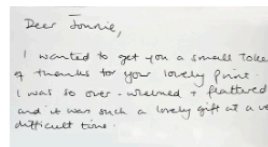 Dear Jonnie,
I wanted to get you a small toke
of thanks for your lovely print.
I was so over-whelmed + flattered
and it was such a lovely gift at a ve
difficult time.